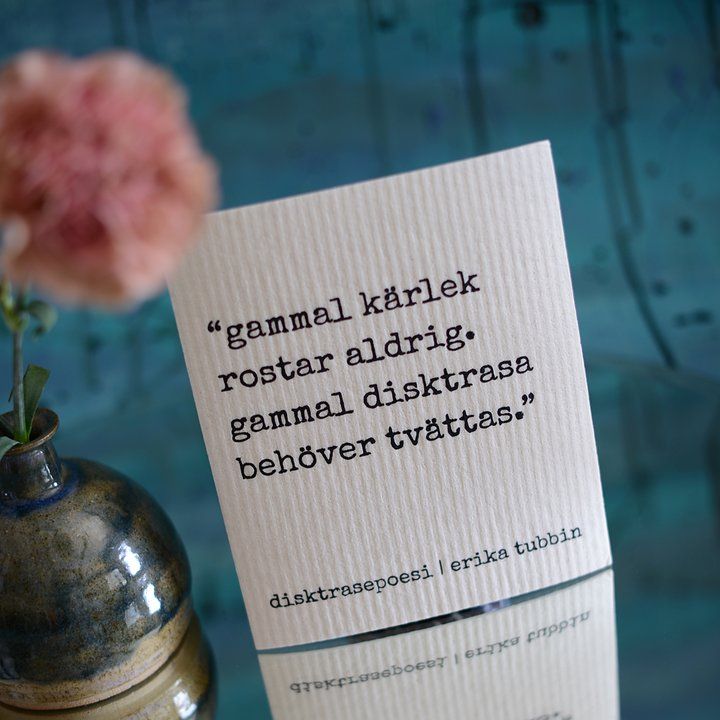 “gammal kärlek
rostar aldrig.
gammal disktrasa
behöver tvättas.”
disktrasepoesi | erika tubbin